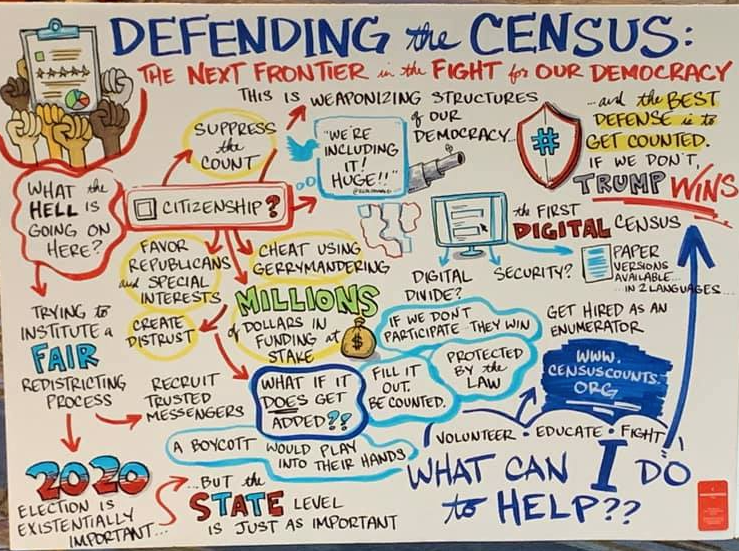 DEFENDING the CENSUS:
THE NEXT FRONTIER in the FIGHT for OUR DEMOCRACY
THIS IS WEAPONIZING STRUCTURES
of OUR
DEMOCRACY...
...and the BEST
DEFENSE is to
GET COUNTED.
IF WE DON'T,
TRUMP WINS
SUPPRESS
the
COUNT
"WE'RE
INCLUDING
IT!
HUGE!!"
#
WHAT the
HELL IS
GOING ON
HERE?
CITIZENSHIP?
the FIRST
DIGITAL CENSUS
DIGITAL
DIVIDE?
SECURITY?
PAPER
VERSIONS
AVAILABLE...
...IN 2 LANGUAGES...
FAVOR
REPUBLICANS
and SPECIAL
INTERESTS
CHEAT USING
GERRYMANDERING
CREATE
DISTRUST
MILLIONS
of DOLLARS IN
FUNDING at
STAKE
$
TRYING to
INSTITUTE a
FAIR
REDISTRICTING
PROCESS
RECRUIT
TRUSTED
MESSENGERS
IF WE DON'T
PARTICIPATE - THEY WIN
WHAT IF IT
DOES GET
ADDED??
FILL IT
OUT.
BE COUNTED.
PROTECTED
BY the
LAW
GET HIRED AS AN
ENUMERATOR
WWW.
CENSUSCOUNTS.
ORG
A BOYCOTT WOULD PLAY
INTO THEIR HANDS
VOLUNTEER • EDUCATE • FIGHT
WHAT CAN I DO
to HELP??
2020
ELECTION IS
EXISTENTIALLY
IMPORTANT...
...BUT the
STATE LEVEL
IS JUST AS IMPORTANT